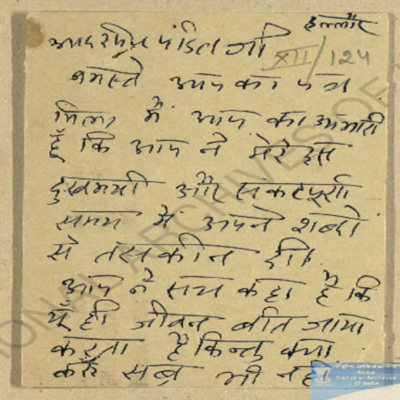 इन्दौर
आदरणीय पंडित जी
XII/124
नमस्ते आप का पत्र
मिला मैं आप का आभारी
हूँ कि आप ने मेरे इस
दुखमयी और संकटपूर्ण
समय में अपने शब्दों
से तसकीन दी।
आप ने सच कहा है कि
यूँ ही जीवन बीत जाया
करता है किन्तु क्या
करें सब्र भी नहीं